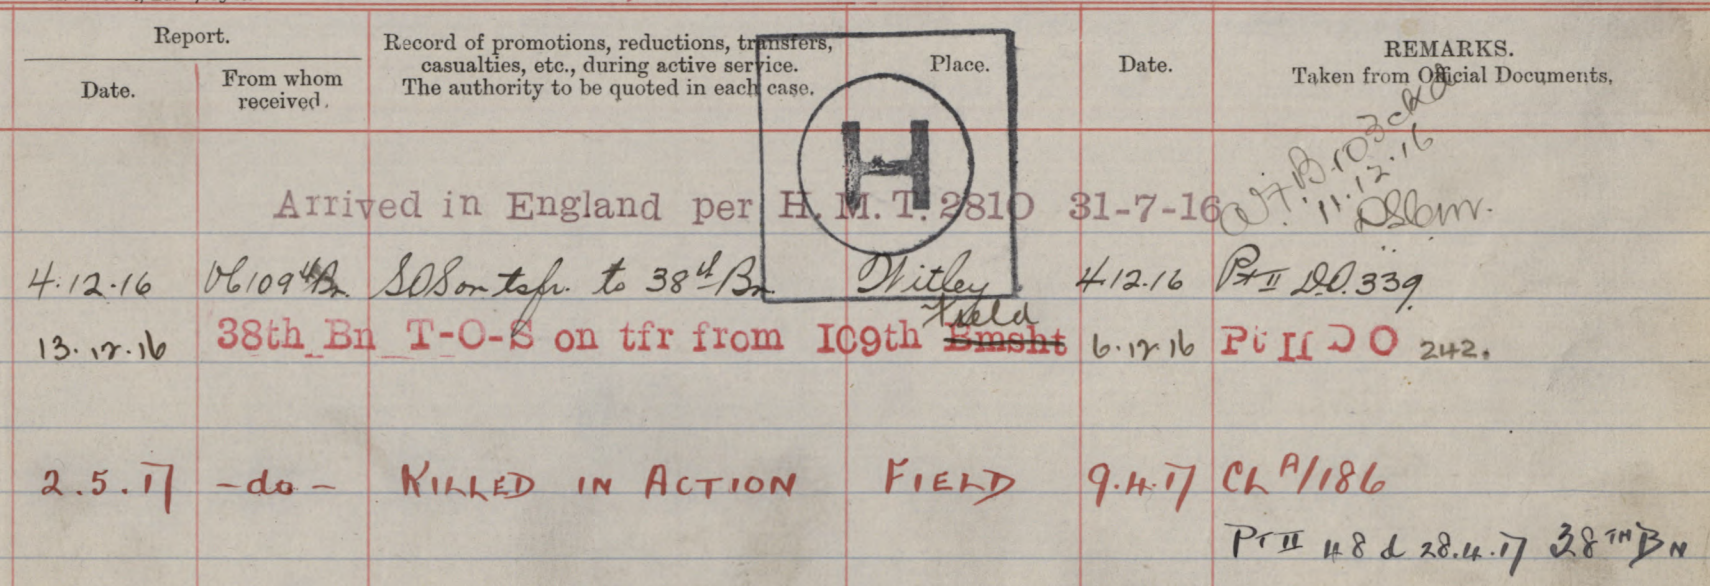 Report.
Record of promotions, reductions, transfers,
casualties, etc., during active service.
The authority to be quoted in each case.
Place.
Date.
REMARKS.
Taken from Official Documents.
Date.
From whom
received.
H
11.12.16
Arrived in England per H.M.T. 2810 31-7-16
4.12.16 OC 109th Bn. SOS on tsfr. to 38th Bn Witley 4.12.16 Pt II D.O. 339.
Field
13.12.16 38th Bn T-O-S on tfr from 109th Bmsht 6.12.16 Pt II D O 242.
2.5.17 -do- KILLED IN ACTION FIELD 9.4.17 CL A/186
PT II 48 d 28.4.17 38TH BN